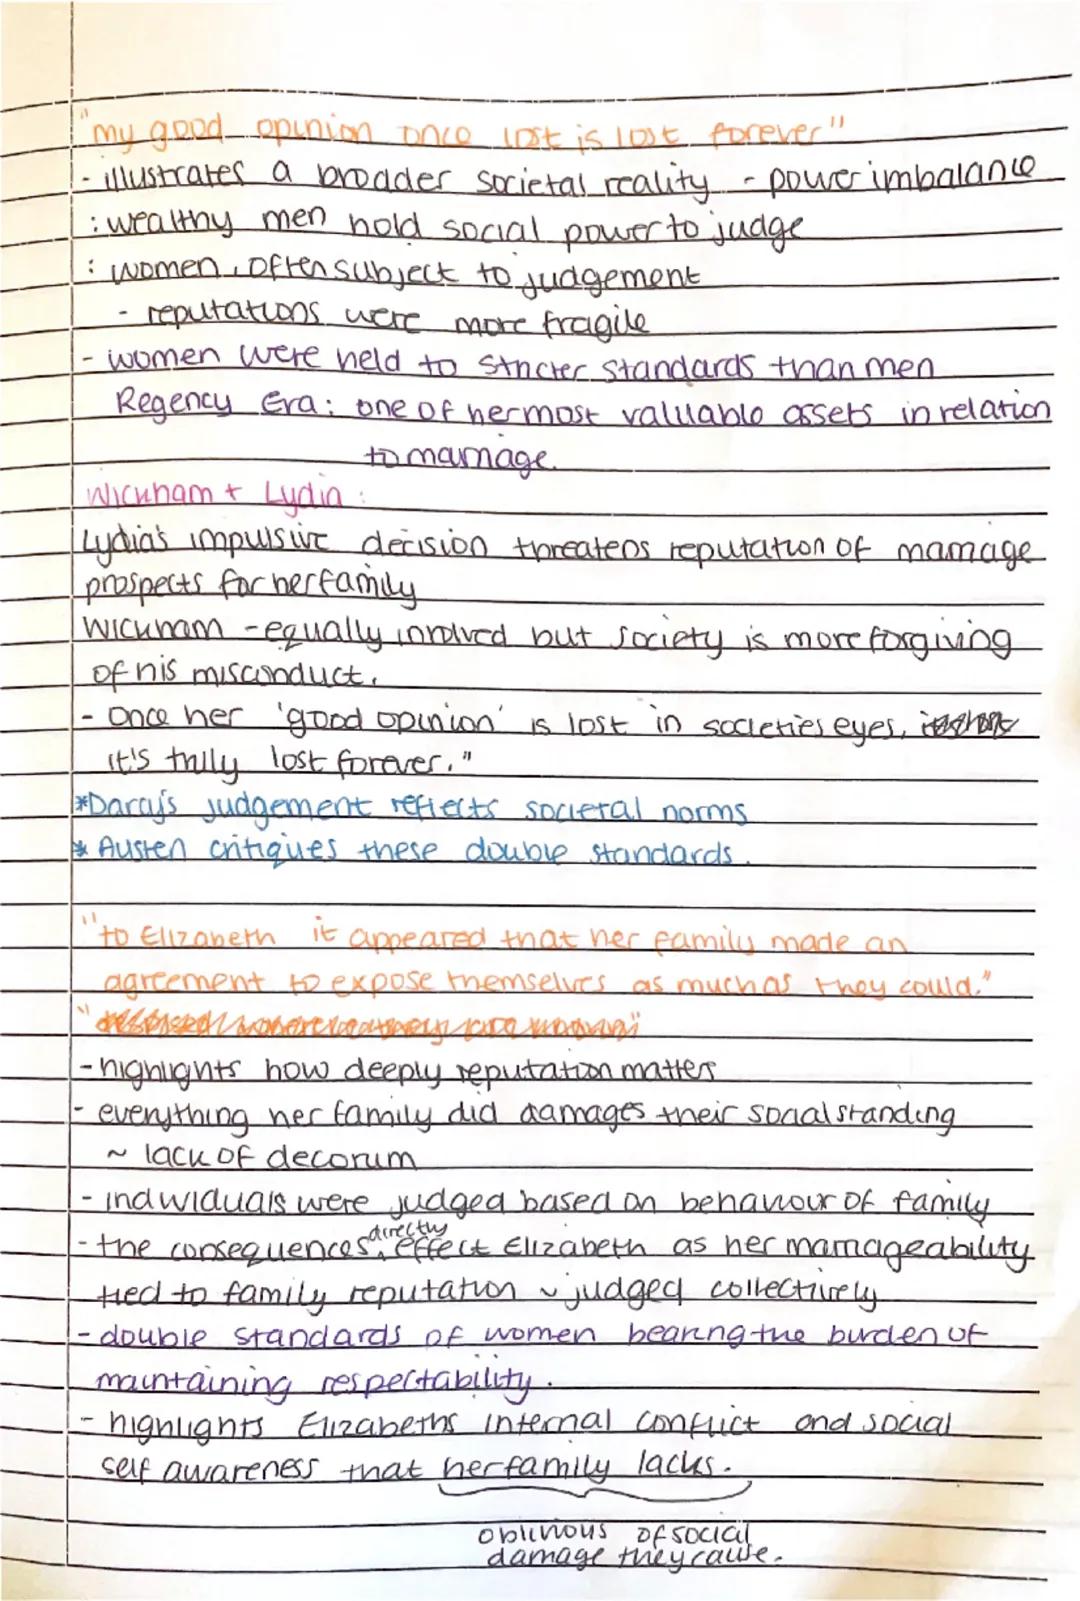 "my good opinion once lost is lost forever"
- illustrates a broader societal reality - power imbalance
: wealthy men hold social power to judge
: women, often subject to judgement
- reputations were more fragile
- women were held to stricter standards than men
Regency Era: one of her most valuable assets in relation
to marriage.
Wickham + Lydia:
Lydia's impulsive decision threatens reputation of marriage
prospects for her family
Wickham - equally involved but society is more forgiving
of his misconduct.
- Once her 'good opinion' is lost in societies eyes,
it's trully lost forever."
*Darcy's judgement reflects societal norms
* Austen critiques these double standards.
"to Elizabeth it appeared that her family made an
agreement to expose themselves as much as they could."
- highlights how deeply reputation matters
- everything her family did damages their social standing
~ lack of decorum
- individuals were judged based on behaviour of family
- the consequences directly effect Elizabeth as her marriageability
tied to family reputation ~ judged collectively
- double standards of women bearing the burden of
maintaining respectability.
- highlights Elizabeths internal conflict and social
self awareness that her family lacks.
oblivious of social
damage they cause.